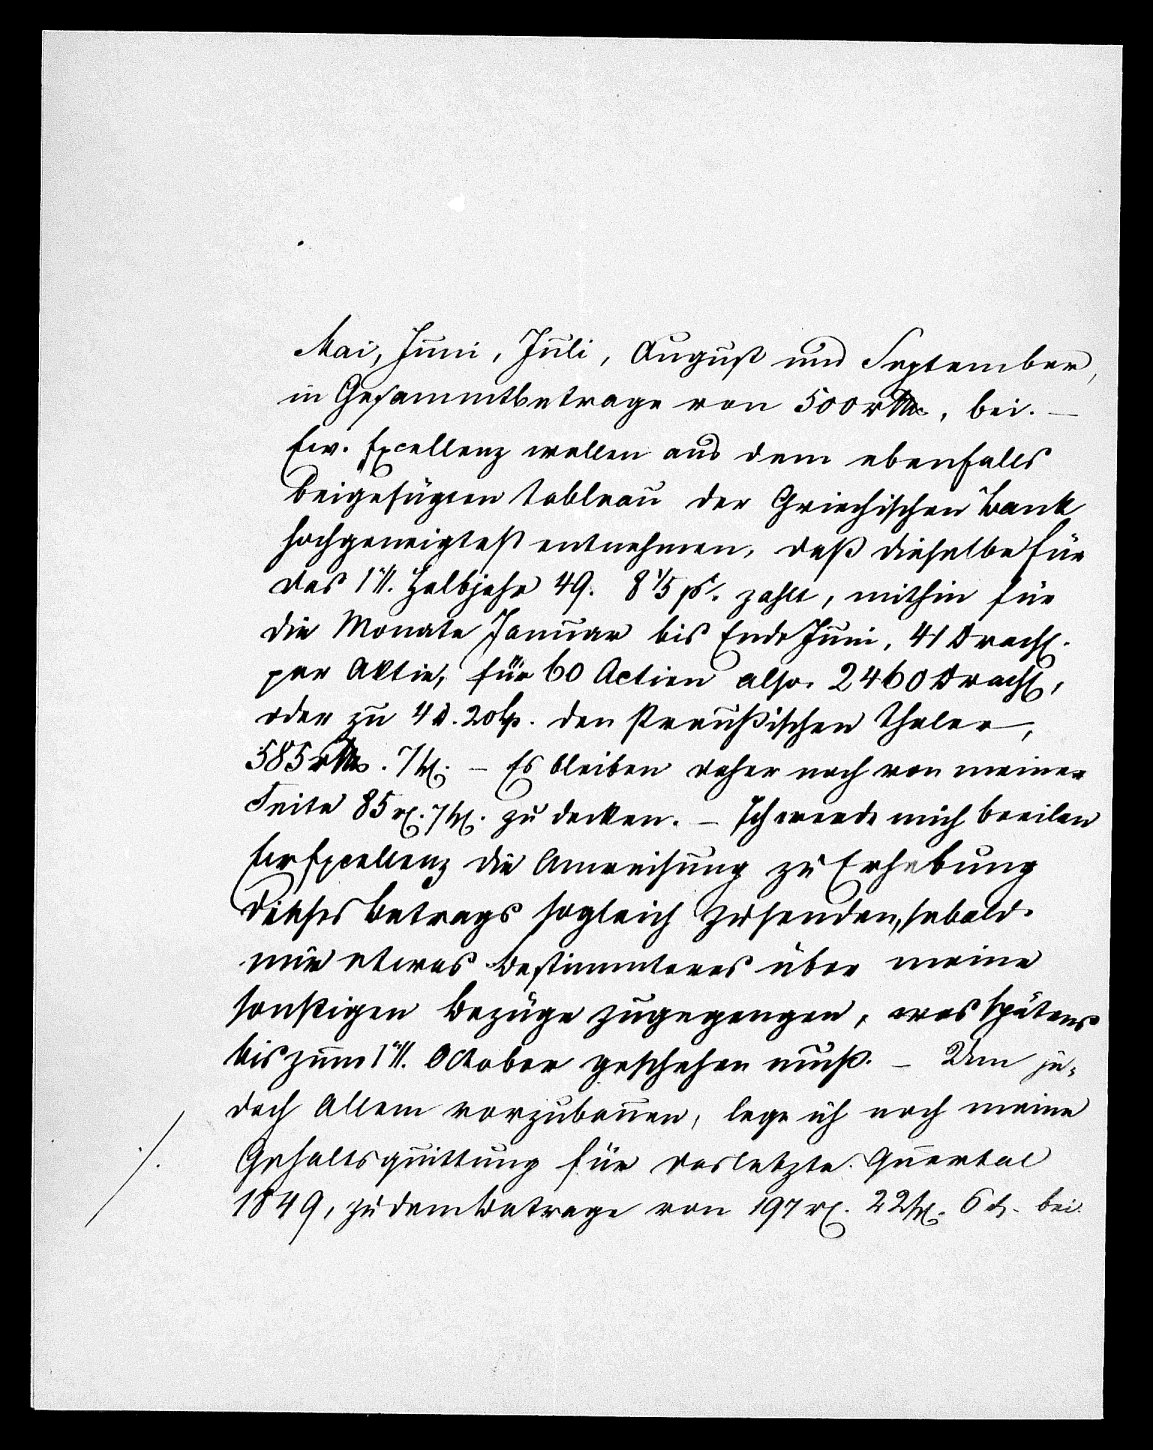 Mai, Juni, Juli, August und September,
in Gesammtbetrage von 500 rthr., bei. —
Ew. Excellenz wollen aus dem ebenfalls
beigefügten Tableau der Griechischen Bank
hochgeneigtest entnehmen, daß dieselbe für
das 1te. Halbjahr 49. 8 1/5 pC. zahlt, mithin für
die Monate Januar bis Ende Juni, 41 Drach.
per Aktie, für 60 Actien also. 2460 Drach,
oder zu 4 d. 20 lp. den Preußischen Thaler,
585 rthr. 7 sg. — Es bleiben daher noch von meiner
Seite 85 r. 7 sg. zu decken. — Ich werde mich beeilen
Ew Excellenz die Anweisung zu Erhebung
dieses Betrags sogleich zu senden, sobald
mir etwas Bestimmteres über meine
sonstigen Bezüge zugegangen, was spätens
bis zum 1ten. October geschehen muß. — Um je-
doch Allem vorzubauen, lege ich noch meine
./. Gehaltsquittung für das letzte Quartal
1849, zu dem Betrage von 197 r. 22 sg. 6 d. bei.